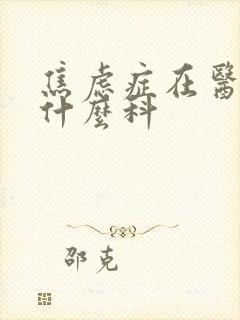 焦虑症在醫
什麽科
邵克